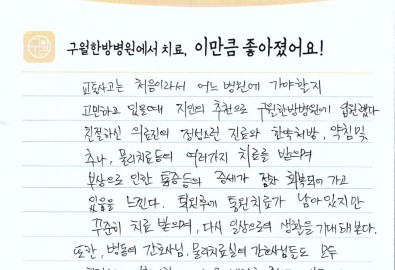 구월한방병원에서 치료, 이만큼 좋아졌어요!
교통사고는 처음이라서 어느 병원에 가야할지
고민하고 있을때 지인의 추천으로 구월한방병원에 입원했다
친절하신 의료진의 정성스런 진료와 한약처방, 약침및
추나, 물리치료등의 여러가지 치료를 받으며
부상으로 인한 통증등의 증세가 점차 회복되어 가고
있음을 느낀다. 퇴원후에 통원치료가 남아있지만
꾸준히 치료 받으며, 다시 일상으로의 생활을 기대해본다.
또한, 병동의 간호사님, 물리치료실의 간호사님들도 모두